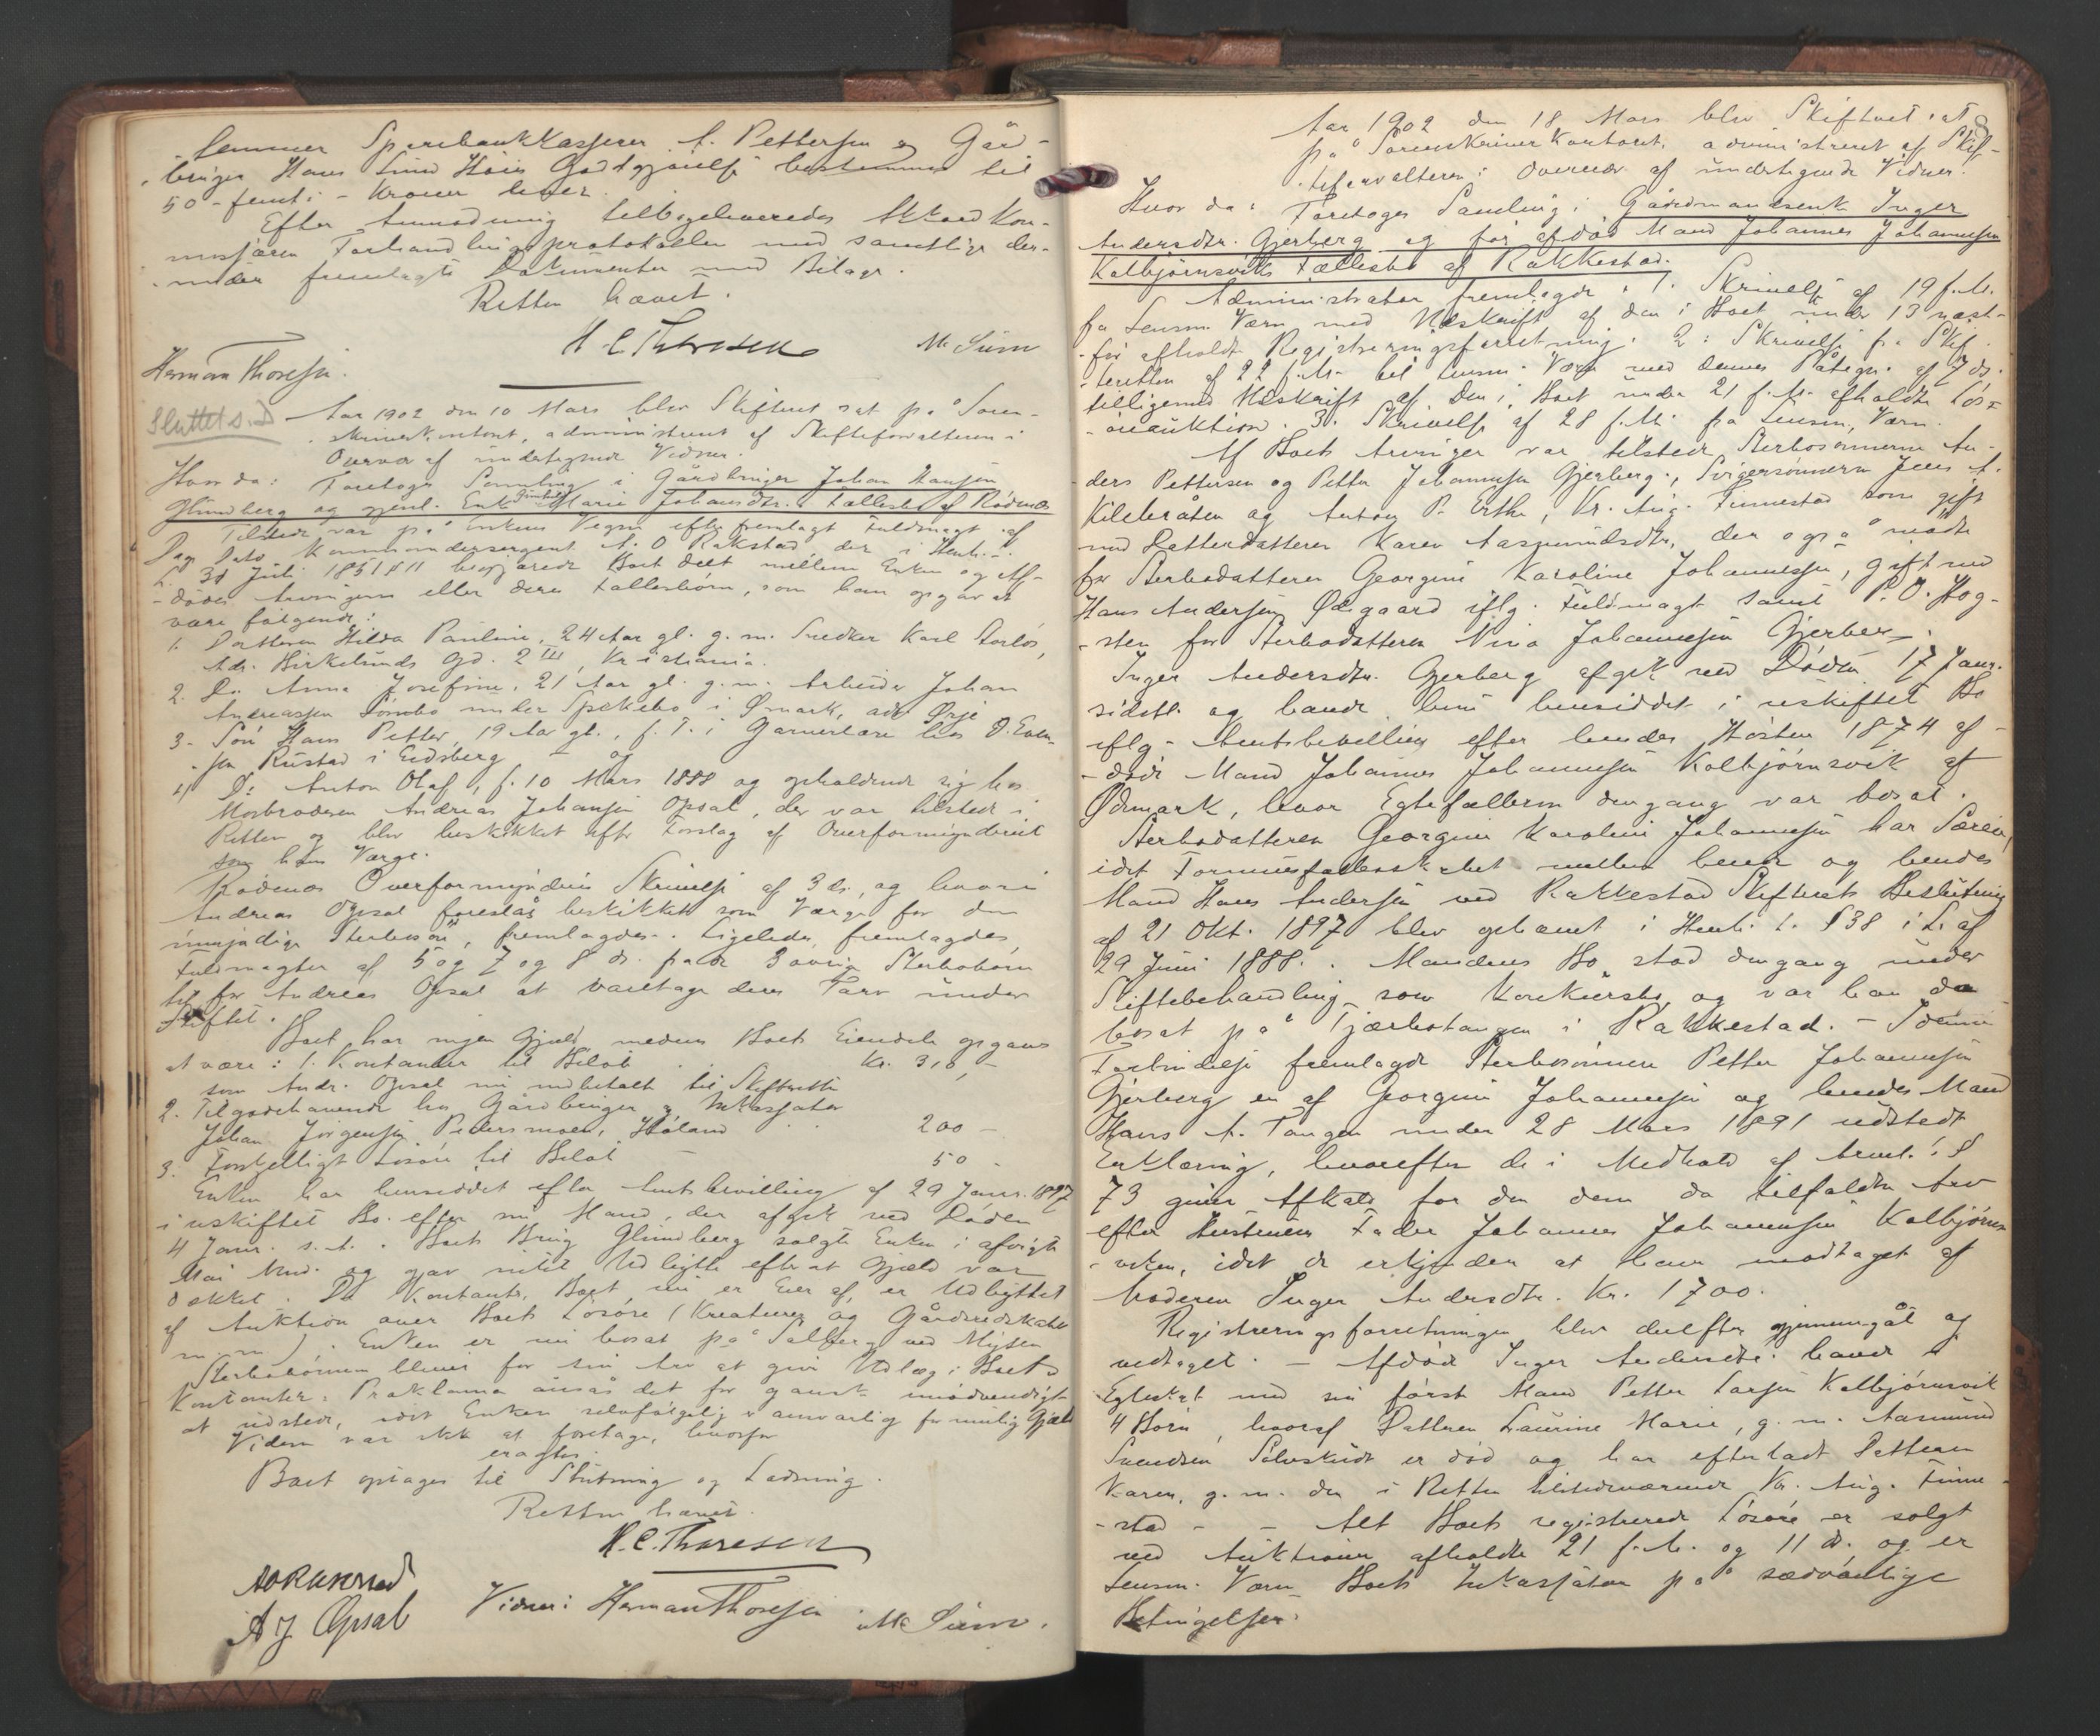 - lemmer Sparebankkasserer A. Pettersen og Gård-
- bruger Hans Lund Høies Godtgjørelse bestemmes til
50 - femti - Kroner hver.
Efter Anmodning tilbageleveredes Akkordkom-
- missæren Forhandlingsprotokollen med samtlige der-
- under fremlagte Dokumenter med Bilage.
Retten hævet.
H C Thoresen
M. Sum
Herman Thoresen.
Sluttet s. D
Aar 1902 den 10 Mars blev Skifteret sat på Soren-
- skriverkontoret, administreret af Skifteforvalteren i
Overvær af undertegnede Vidner.
Hvor da: Foretoges Samling i Gårdbruger Johan Hansen
Glimberg og gjenl. Enke Marie Johansdtr.s Fællesbo af Rødenes
Tilstede var på Enkens Vegne efter fremlagt Fuldmagt af
Dags Dato Kommandersergent A. O Rakstad, der i Henh. t.
L. 31 Juli 1851 § 11 begjærede Boet delt mellem Enken og Af-
- dødes Arvinger eller deres Fællesbørn, som han opgav at
være følgende:
1. Datteren Hilda Pauline, 24 Aar gl. g. m. Snedker Karl
Adr. Birkelunds Gd. 2 III, Kristiania.
2. Do Anna Josefine, 21 Aar gl. g. m. Arbeider Johan
Andreassen under Spækebo i Ømark, adr Ørje
3. Søn Hans Petter, 19 Aar gl., f. T. i Garverlære hos O. Even-
- sen Rustad i Eidsberg og
4) Do Anton Olaf, f. 10 Mars 1888 og opholdende sig hos
Morbroderen Andreas Johansen Opsal, der var tilstede i
Retten og blev beskikket efter Forslag af Overformynderiet
som hans Værge.
Rødenes Overformynderis Skrivelse af 3 ds., og hvori
Andreas Opsal foreslåes beskikket som Værge for den
umyndige Sterbosøn, fremlagdes. Ligeledes fremlagdes
Fuldmagter af 5 og 7 og 8 ds. fra de 3 øvrige Sterbobørn
til for Andreas Opsal at varetage deres Tarv under
Skiftet.
Boet har ingen Gjæld medens Boets Eiendele opgaves
at være: 1. Kontanter til Beløb Kr. 310, -
som Andr. Opsal nu indbetalte til Skifteretten
2. Tilgodehavende hos Gårdbruger og Inkassator
Johan Jørgensen Pedersmoen, Høland 200 -
3. Forskjelligt Løsøre til Beløb 50 -
Enken har hensiddet efter Amtsbevilling af 29 Janr. 1897
i uskiftet Bo efter sin Mand, der afgik ved Døden
4 Janr. s. A. Boets Brug Glimberg solgte Enken i afvigte
Mai Mnd. og gav intet Udbytte efterat Gjæld var
dækket. De Kontanter, Boet nu er Eier af, er Udbyttet
af Auktion over Boets Løsøre (Kreaturer og Gårdsredskaber
m. m.). Enken er nu bosat på Salberg ved Mysen
Sterbobørnene bliver for sin Arv at give Udlæg i Boets
Kontanter. Proklama ansås det for ganske unødvendigt
at udstede, idet Enken selvfølgelig er ansvarlig for mulig Gjæld
Videre var ikke at foretage, hvorfor
eragtes:
Boet optages til Slutning og Lodning.
Retten hævet.
H. C. Thoresen
AORakstad
A J Opsal
Vidner: Herman Thoresen
M. Sum.
8
Aar 1902 den 18 Mars blev Skifteret sat
på Sorenskriverkontoret, administreret af Skif-
- teforvalteren i Overvær af undertegnede Vidner.
Hvor da: Foretoges Samling i Gårdmandsenke Inger
Andersdtr. Gjerberg og før afdød Mand Johannes Johannesen
Kolbjørnsviks Fællesbo af Rakkestad.
Administrator fremlagde: 1. Skrivelse af 19 f. M.
fra Lensm. Værn med Udskrift af den i Boet under 13 næst-
- før afholdte Registreringsforretning. 2: Skrivelse fra Skif-
- teretten af 22 f. M. til Lensm. Værn med dennes Påtegn. af 7 ds.
tilligemed Udskrift af den i Boet under 21 f. M. afholdte Løs-
- øreauktion. 3. Skrivelse af 28 f. M. fra Lensm. Værn.
Af Boets Arvinger var tilstede Sterbosønnerne An-
- ders Pettersen og Petter Johannesen Gjerberg, Svigersønnerne Jens A.
Kilebråten og Anton P. Erthe, Kr. Aug. Finnestad som gift
med Datterdatteren Karen Aasmundsdtr., der også mødte
for Sterbodatteren Georgine Karoline Johannesen, gift med
Hans Andersen Ødegaard iflg. Fuldmagt samt P. O. Hog-
- sten for Sterbodatteren Nina Johannesen Gjerberg.
Inger Andersdtr. Gjerberg afgik ved Døden 17 Janr.
sidstl. og havde hun hensiddet i uskiftet Bo
iflg. Amtsbevilling efter hendes Høsten 1874 af-
- døde Mand Johannes Johannesen Kolbjørnsvik af
Ødmark, hvor Egtefællerne dengang var bosat.
Sterbodatteren Georgine Karoline Johannesen har Særeie,
idet Formuesfællesskabet mellem hende og hendes
Mand Hans Andersen ved Rakkestad Skifterets Beslutning
af 21 Okt. 1897 blev ophævet i Henh. t. § 38 i L. af
29 Juni 1888. Mandens Bo stod dengang under
Skiftebehandling som Konkursbo og var han da
bosat på Tjærbotangen i Rakkestad. - I denne
Forbindelse fremlagde Sterbosønnen Petter Johannesen
Gjerberg en af Georgine Johannesen og hendes Mand
Hans A. Tangen under 28 Mars 1891 udstedt
Erklæring, hvorefter de i Medhold af Arvel. s §
73 giver Afkald for den dem da tilfaldte Arv
efter Hustruens Fader Johannes Johannesen Kolbjørns-
- viken, idet de erkjender at have modtaget af
Moderen Inger Andersdtr. Kr. 1700.
Registreringsforretningen blev derefter gjennemgåt og
vedtaget. - Afdøde Inger Andersdtr. havde i
Egteskab med sin første Mand Petter Larsen Kolbjørnsvik
4 Børn, hvoraf Datteren Laurine Marie, g. m. Aasmund
Svendsen Sølvskudt er død og har efterladt Datteren
Karen, g. m. den i Retten tilstedeværende Kr. Aug. Finne-
- stad - - Alt Boets registrerede Løsøre er solgt
ved Auktioner afholdte 21 f. M. og 11 ds. og er
Lensm. Værn Boets Inkassator på sædvanlige
Betingelser.